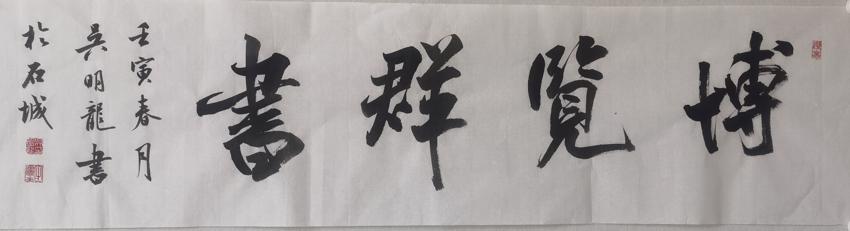 博覽群書
壬寅春月
吴明龍書
於石城